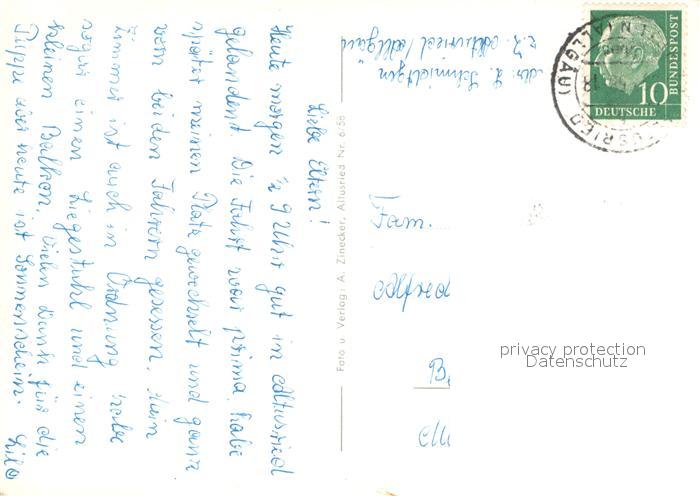 Liebe Eltern!
Heute morgen ½ 9 Uhr gut in Altusried
gelandet. Die Fahrt war prima, habe
später meinen Platz gewechselt und ganz
vorn bei den Fahrern gesessen. Mein
Zimmer ist auch in Ordnung habe
sogar einen Liegestuhl und einen
kleinen Balkon. Vielen Dank für die
Suppe aber heute ist Sonnenschein. Lilo
Foto u. Verlag: A. Zinecker, Altusried Nr. 6/58
Abs. L. Schmidtgen
z.Z. Altusried / Allgäu
Fam.
Alfred
B
M
10
DEUTSCHE
BUNDESPOST
ALTUSRIED
(ALLGÄU)
privacy protection
Datenschutz